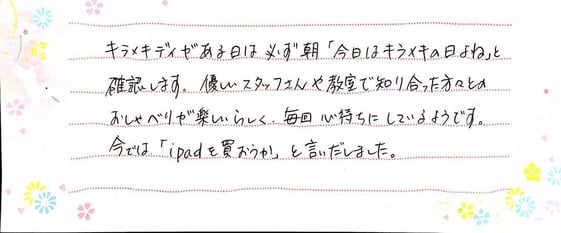 キラメキデイがある日は必ず朝「今日はキラメキの日よね」と
確認します。優しいスタッフさんや教室で知り合った方々との
おしゃべりが楽しいらしく、毎回心待ちにしているようです。
今では「ipadを買おうか」と言いだしました。